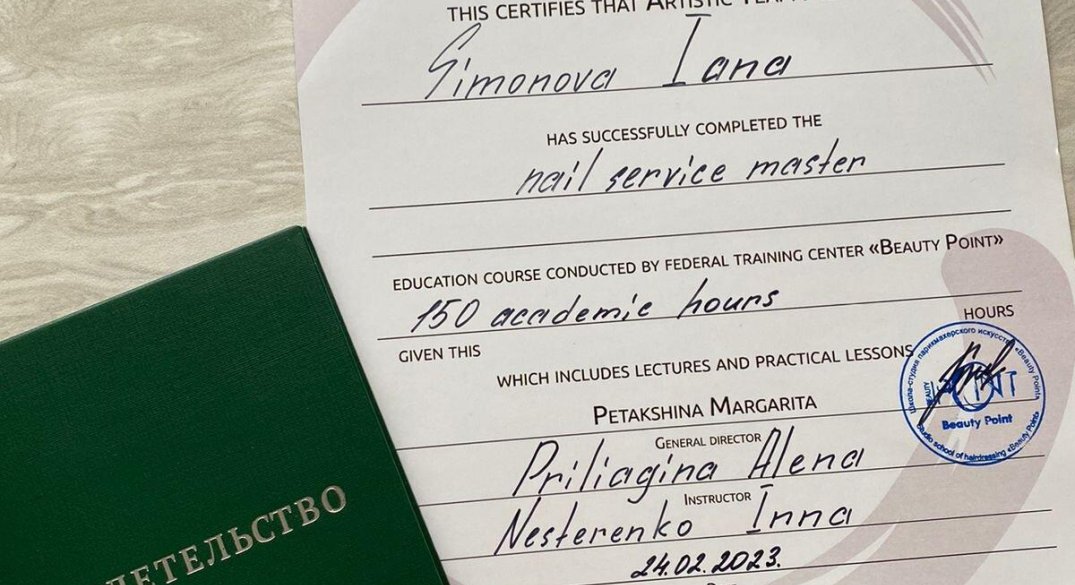 THIS CERTIFIES THAT ARTISTIC
Simonova Iana
HAS SUCCESSFULLY COMPLETED THE
nail service master
EDUCATION COURSE CONDUCTED BY FEDERAL TRAINING CENTER «BEAUTY POINT»
150 academic hours
HOURS
GIVEN THIS
WHICH INCLUDES LECTURES AND PRACTICAL LESSONS
PETAKSHINA MARGARITA
GENERAL DIRECTOR
Priliagina Alena
INSTRUCTOR
Nesterenko Inna
24.02.2023.
Школа-студия парикмахерского искусства «Beauty Point»
BEAUTY
Beauty Point
Studio school of hairdressing «Beauty Point»
ДЕТЕЛЬСТВО